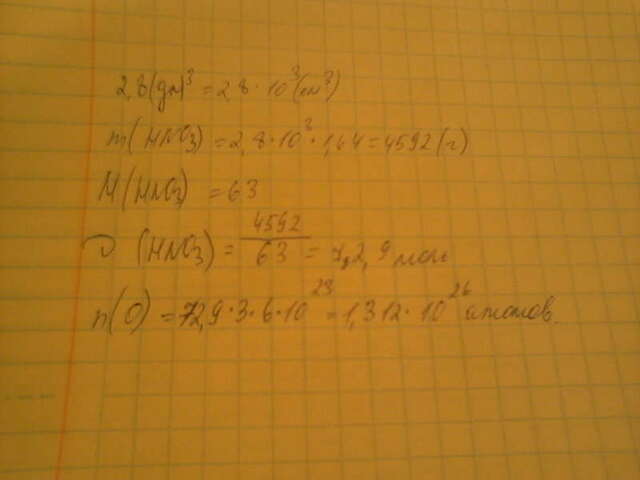 2,8(дм)³ = 2,8 · 10³(см³)
m(HNO₃) = 2,8 · 10³ · 1,64 = 4592 (г)
M(HNO₃) = 63
ν (HNO₃) = 4592/63 = 72,9 моль
n(O) = 72,9 · 3 · 6 · 10²³ = 1,312 · 10²⁶ атомов.